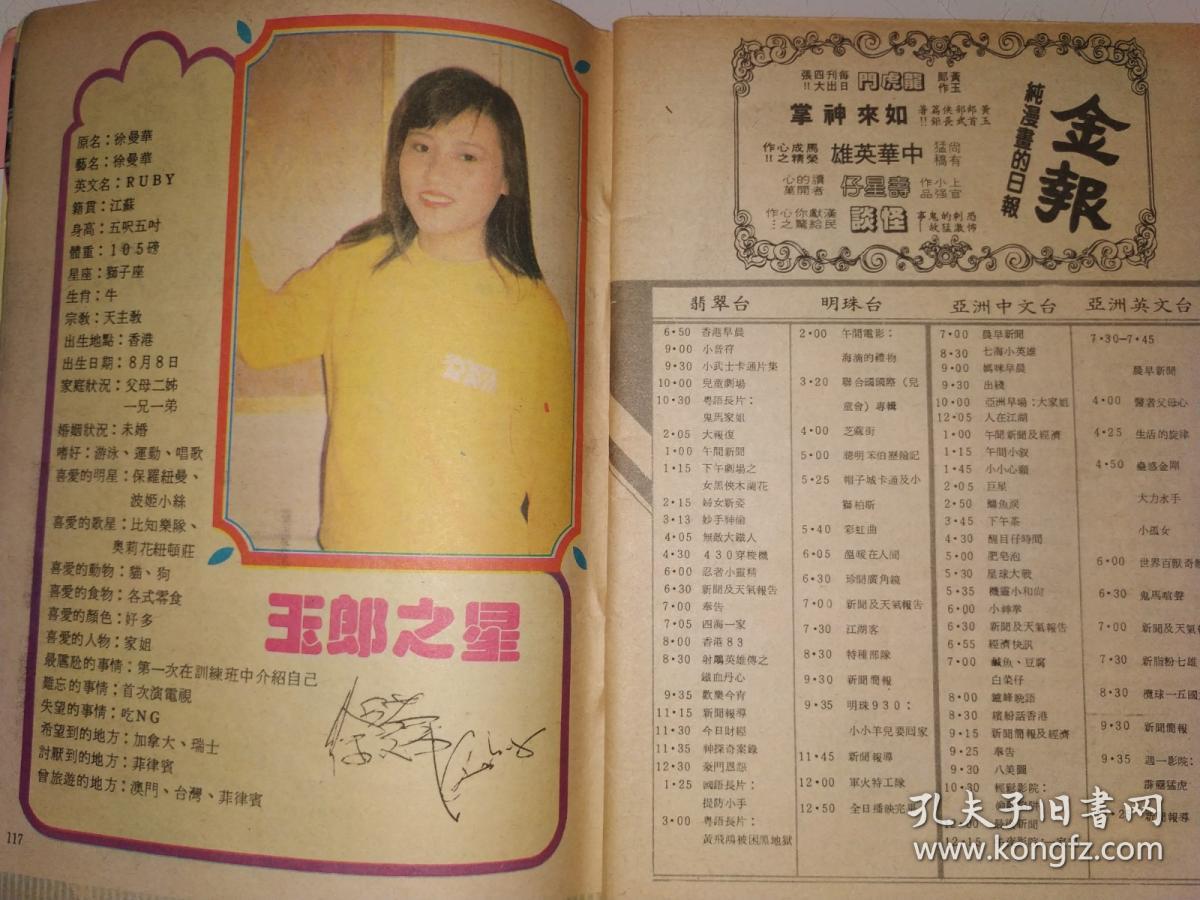 原名：徐曼華
藝名：徐曼華
英文名：RUBY
籍貫：江蘇
身高：五呎五吋
體重：105磅
星座：獅子座
生肖：牛
宗教：天主教
出生地點：香港
出生日期：8月8日
家庭狀況：父母二姊
一兄一弟
婚姻狀況：未婚
嗜好：游泳、運動、唱歌
喜愛的明星：保羅紐曼、
波姬小絲
喜愛的歌星：比知樂隊、
奧莉花紐頓莊
喜愛的動物：貓、狗
喜愛的食物：各式零食
喜愛的顏色：好多
喜愛的人物：家姐
最尷尬的事情：第一次在訓練班中介紹自己
難忘的事情：首次演電視
失望的事情：吃NG
希望到的地方：加拿大、瑞士
討厭到的地方：菲律賓
曾旅遊的地方：澳門、台灣、菲律賓
玉郎之星
117
金報
純漫畫的日報
黃玉郎作
龍虎門
每日刊出四大張!!
如來神掌
尚有猛稿
中華英雄
馬榮成精心之作!!
上官小強作品
壽星仔
讀者的開心
恐怖刺激的猛鬼故事
怪談
漢民獻給你驚心之作…
翡翠台
6·50 香港早晨
9·00 小音符
9·30 小武士卡通片集
10·00 兒童劇場
10·30 粵語長片：
鬼馬家姐
2·05 大報復
1·00 午間新聞
1·15 下午劇場之
女黑俠木蘭花
2·15 婦女新姿
3·13 妙手神偷
4·05 無敵大鐵人
4·30 430穿梭機
6·00 忍者小靈精
6·30 新聞及天氣報告
7·00 奉告
7·05 四海一家
8·00 香港83
8·30 射鵰英雄傳之
鐵血丹心
9·35 歡樂今宵
11·15 新聞報導
11·30 今日財經
11·35 神探奇案錄
12·30 豪門恩怨
1·25 國語長片：
提防小手
3·00 粵語長片：
黃飛鴻被困黑地獄
明珠台
2·00 午間電影：
海浦的禮物
3·20 聯合國國際（兒
童會）專輯
4·00 芝蔴街
5·00 聰明笨伯歷險記
5·25 帽子城卡通及小
獅柏斯
5·40 彩虹曲
6·05 溫暖在人間
6·30 珍聞廣角鏡
7·00 新聞及天氣報告
7·30 江湖客
8·30 特種部隊
9·30 新聞簡報
9·35 明珠930：
小小羊兒要回家
11·45 新聞報導
12·00 軍火特工隊
12·50 全日播映完畢
亞洲中文台
7·00 晨早新聞
8·30 七海小英雄
9·00 媽咪早晨
9·30 出綫
10·00 亞洲早場：大家姐
12·05 人在江湖
1·00 午間新聞及經濟
1·15 午間小敍
1·45 小小心願
2·05 巨星
2·50 鱷魚淚
3·45 下午茶
4·30 醒目仔時間
5·00 肥皂泡
5·30 星球大戰
5·35 機靈小和尚
6·00 小神拳
6·30 新聞及天氣報告
6·55 經濟快訊
7·00 鹹魚、豆腐
白菜仔
8·00 鑪峰晚語
8·30 繽紛話香港
9·15 新聞簡報及經濟
9·25 奉告
9·30 八美圖
10·30 輕鬆影院：
亞洲英文台
7·30-7·45
晨早新聞
4·00 醫者父母心
4·25 生活的旋律
4·50 蠱惑金剛
大力水手
小孤女
6·00 世界百獸奇
6·30 鬼馬喧聲
7·00 新聞及天氣
7·30 新脂粉七雄
8·30 欖球一五國
9·30 新聞簡報
9·35 週一影院：
霹靂猛虎
新聞報導
孔夫子旧书网
www.kongfz.com